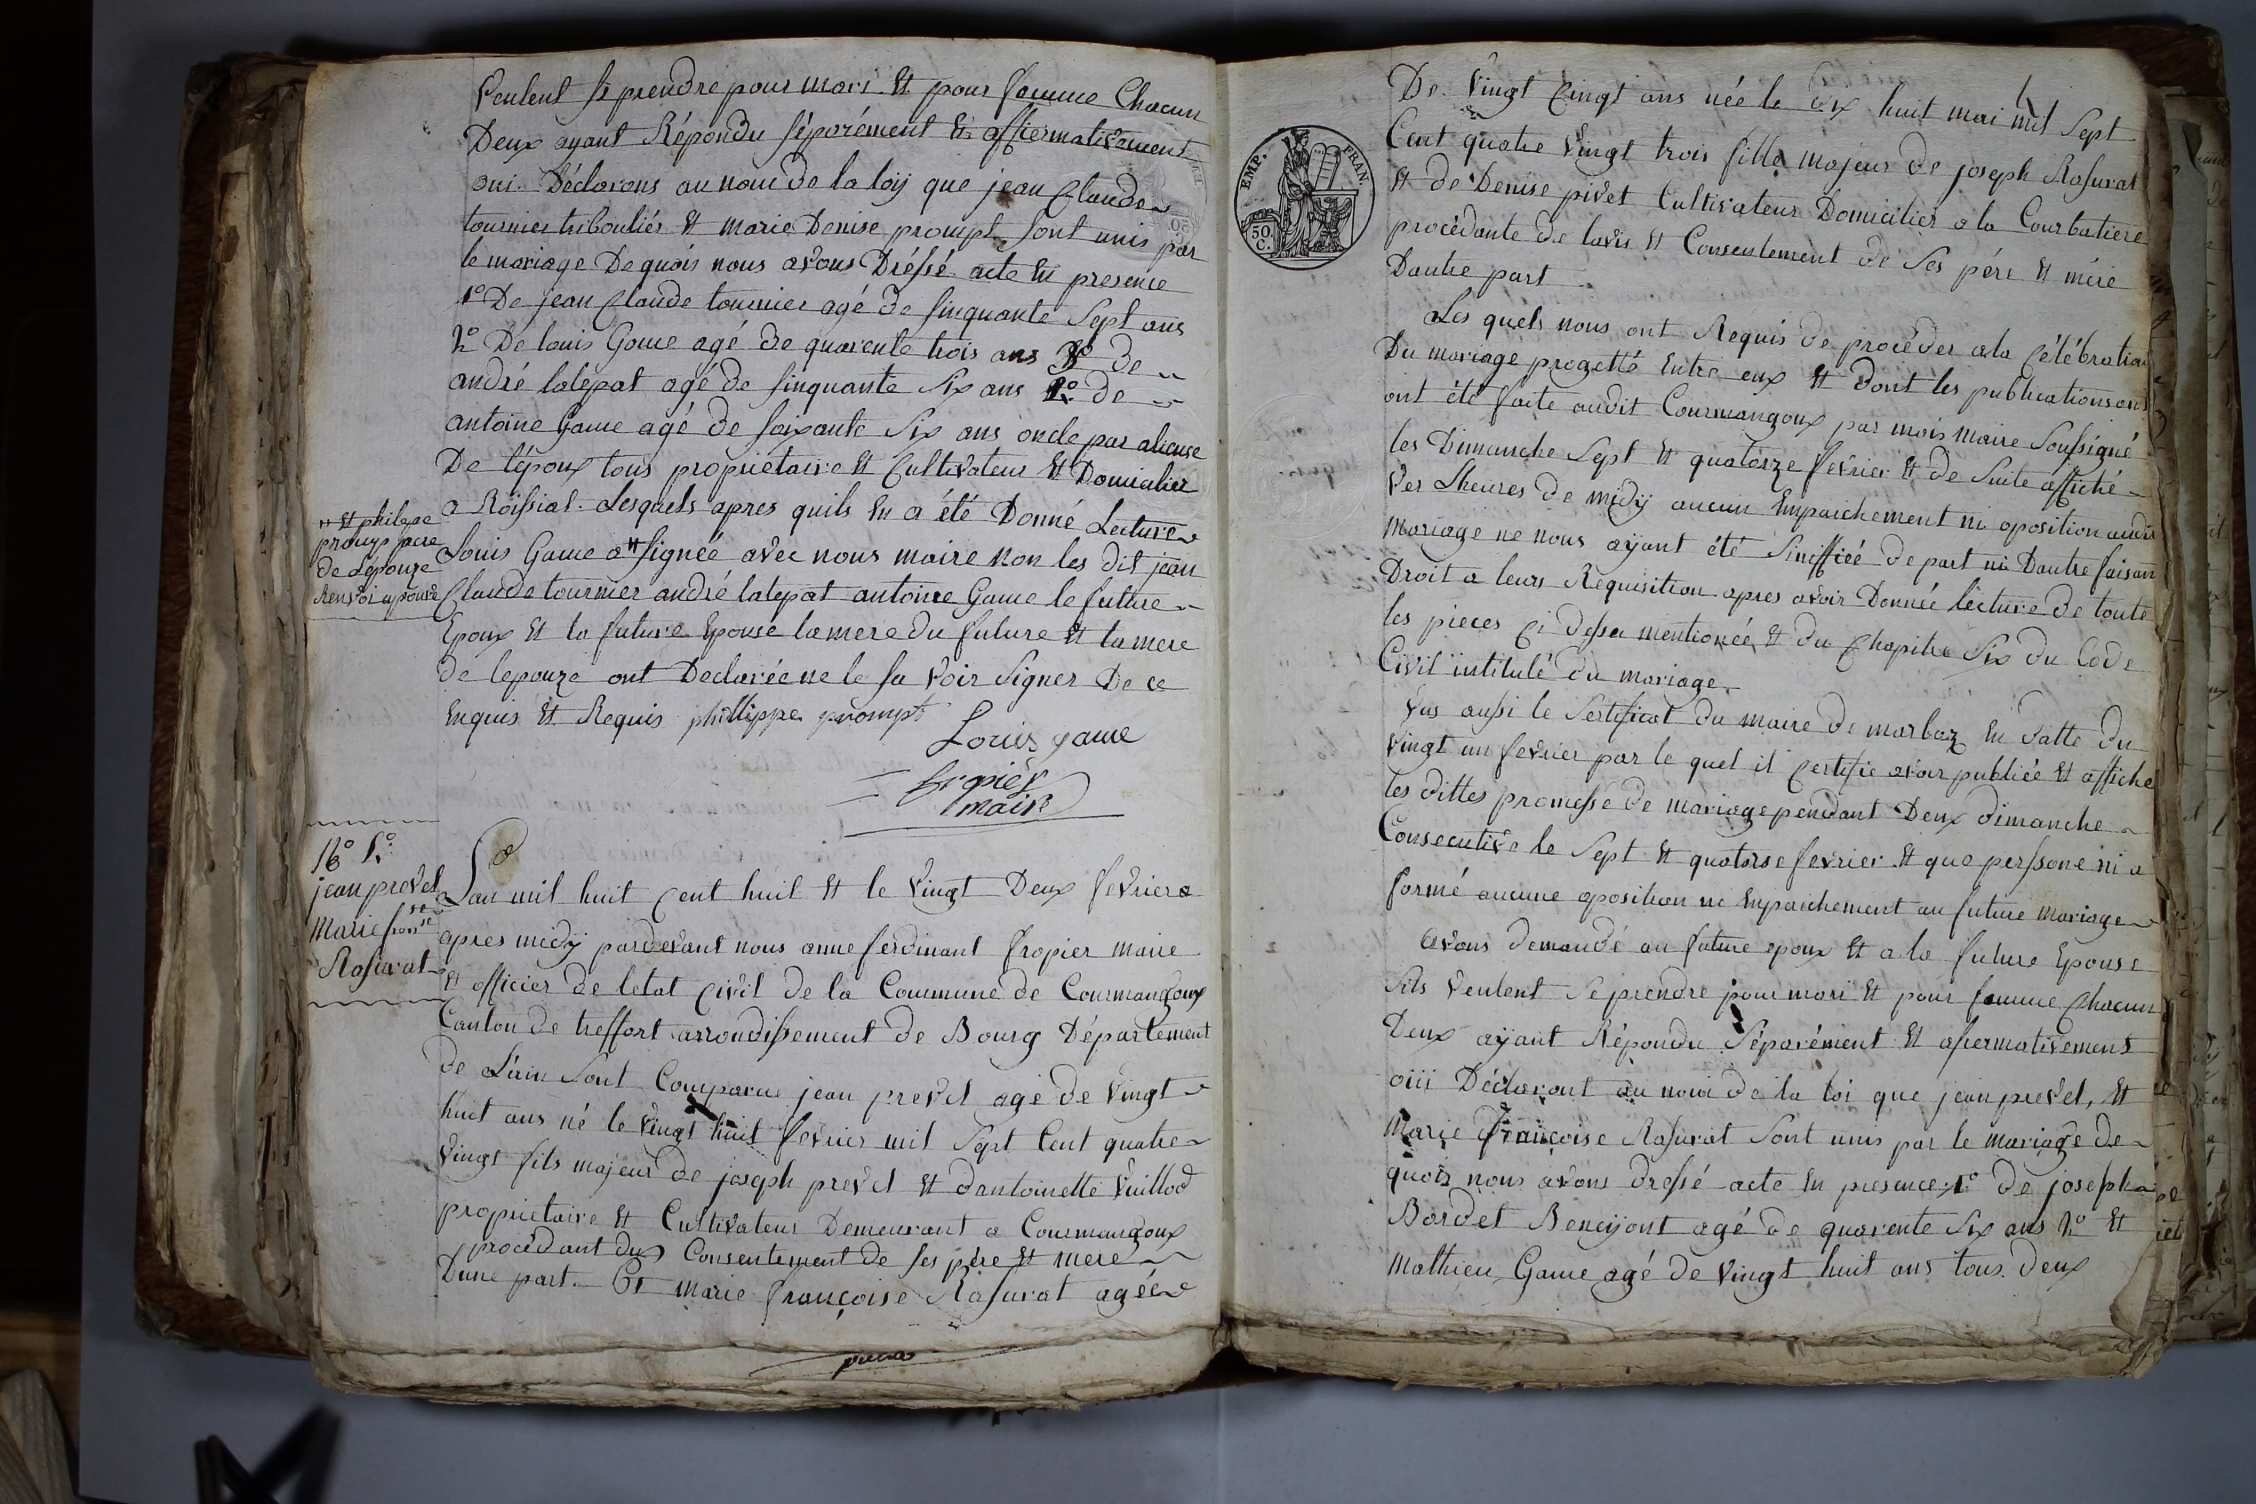 Veulent se prendre pour mari et pour famme Chacun
Deux ayant Répondu séporément et affiermativement
oui. Déclarons au nom de la loÿ que jean Claude
tournier tribouliér et marie Denise prompt sont unis par
le mariage De quois nous avons Dréssé acte En presence
1º De jean Claude tournier agé de sinquante Sept ans
2º De louis Game agé de quarente trois ans 3º de
andré latepat agé de sinquante Six ans 4º de
antoine Game agé de soixante Six ans oncle par alience
De l'époux tous propriétaire et Cultivateur et Domicilier
a Roissiat. Lesquels apres quils En a été Donné Lecture
Louis Game a " signéé avec nous maire non les dit jean
Claude tournier andré latepat antoine Game le future
Epoux et la future Epouse la mere du future et la mere
de lepouze ont Declarée ne le sa voir Signer De ce
Enquis et Requis phillippe prompt
Louis game
fropier
maire
" et philipe
promp pere
de Lépouze
Renvoi aprouvé
16º
jean prevel
et
Marie franse
Rasurat
Lan mil huit Cent huit et le vingt Deux fevrier
apres midÿ pardevant nous anne ferdinant fropier maire
et officier de letat Civil de la Commune de Courmangoux
Canton de treffort arrondissement de Bourg Département
de L'ain Sont Comparue jean prevel agé de vingt
huit ans né le vingt huit fevrier mil Sept Cent quatre
vingt fils majeur de joseph prevel et dantoinette vuillod
proprietaire et Cultivateur Demeurant a Courmangoux
procédant du Consentement de ses pére et mere
Dune part. Et marie françoise Rasurat agée
De vingt Cinqt ans née le dix huit mai mil Sept
Cent quatre vingt trois fille majeur de joseph Rasurat
et de Denise pivet Cultivateur Domicilier a la Courbatiere
procédante de lavis et Consentement de Ses pére et mére
Dautre part
EMP. FRAN.
50. C.
Les quels nous ont Requis de procéder a la Célébration
Du mariage progetté Entre eux et dont les publications ons
ont été faite audit Courmangoux par mois Maire Soussigné
les Dimanche Sept et quatorze fevrier et de Suite affiché
ver Lheures de midÿ aucun Empaichement ni oposition audit
mariage ne nous aÿant été Siniffiéé de part ni Dautre faisan
Droit a leurs Réquisition apres avoir Donnée lécture de toute
les pieces Ci dessu mentionéé et du Chapitre Six du Code
Civil intitulé du mariage.
Vus aussi le Sertificat du maire de marboz En datte du
vingt un fevrier par le quel il Certifie avoir publiée et affiche
les dittes promesse de mariage pendant Deux dimanche
Consecutive le Sept et quatorse fevrier et que perssone ni a
formé aucune oposition ni Empaichement au future mariage
Avons demandé au future epoux et a la future Epouse
Sils veulent Se prendre pour mari et pour famme Chacun
Deux aÿant Répondu Séparément et afiermativement
oüi Déclaront au nom de la loi que jean prevel, et
Marie Françoise Rasurat Sont unis par le mariage de
quois nous avons dressé acte En presence 1º de joseph
Bordet Bencÿont agé de quarente Six ans 2º et
Mathieu Game agé de vingt huit ans tous deux